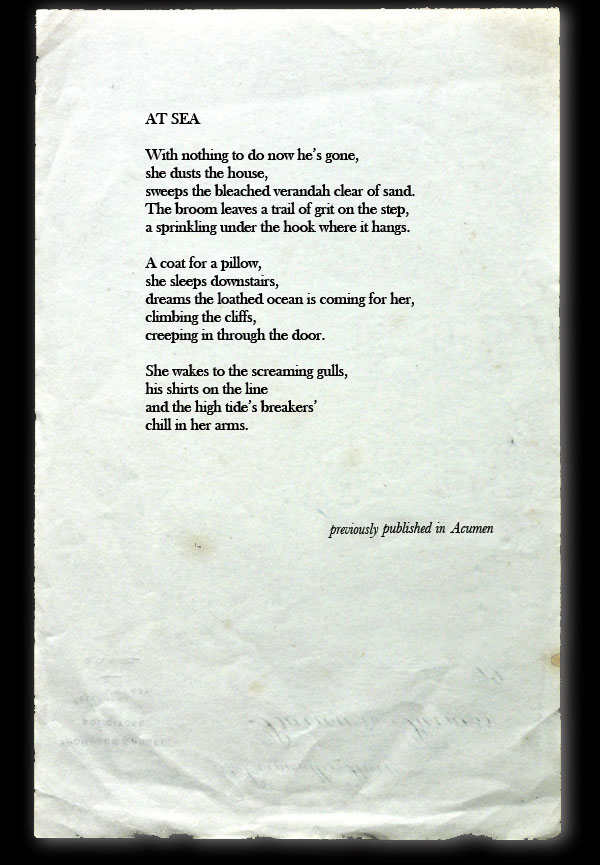 AT SEA
With nothing to do now he's gone,
she dusts the house,
sweeps the bleached verandah clear of sand.
The broom leaves a trail of grit on the step,
a sprinkling under the hook where it hangs.
A coat for a pillow,
she sleeps downstairs,
dreams the loathed ocean is coming for her,
climbing the cliffs,
creeping in through the door.
She wakes to the screaming gulls,
his shirts on the line
and the high tide's breakers'
chill in her arms.
previously published in Acumen